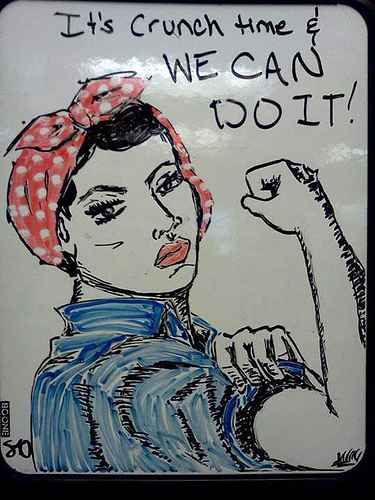 It's Crunch time &
WE CAN
DO IT!
BOONE